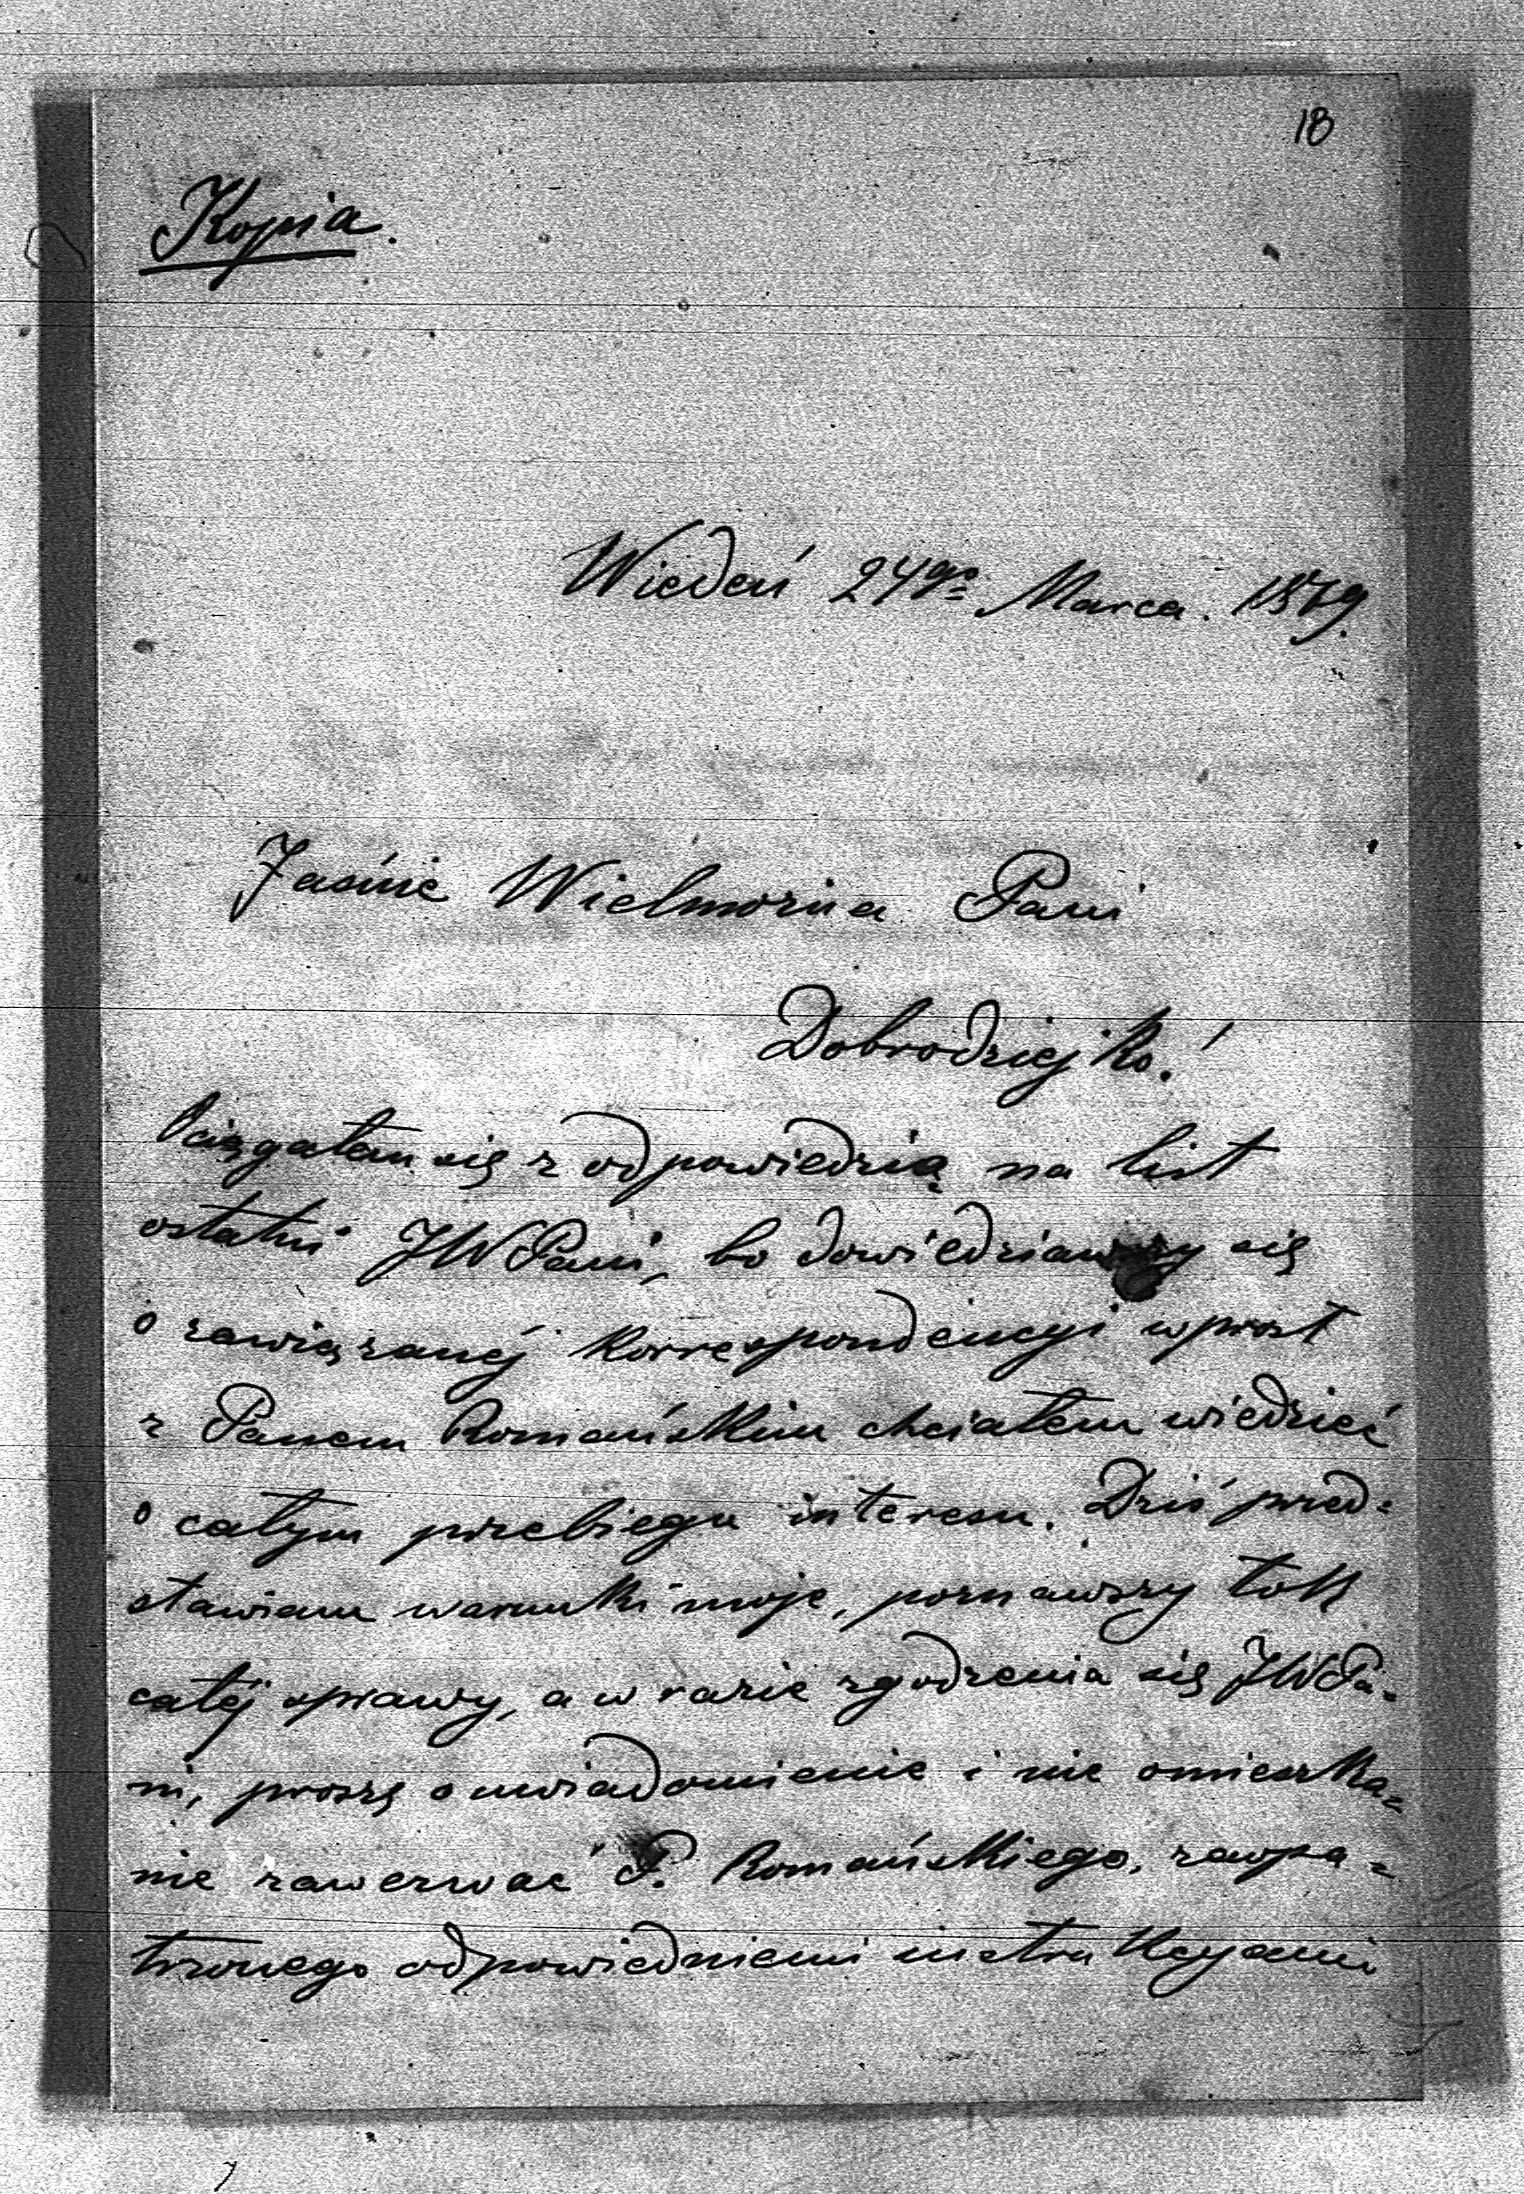 18
Kopia.
Wiedeń 24go Marca. 1879.
Jaśnie Wielmożna Pani
Dobrodziejko!
Ociągałem się z odpowiedzią na list
ostatni JWPani, bo dowiedziawszy się
o zawiązanéj korrespondencyi wprost
z Panem Romańskim chciałem wiedzieć
o całym przebiegu interesu. Dziś przed-
stawiam warunki moje, poznawszy tok
całéj sprawy, a w razie zgodzenia się JWPa-
ni, proszę o uwiadomienie i nie omieszka-
nie zawezwać P. Romańskiego, zaopa-
trzonego odpowiedniemi instrukcyami